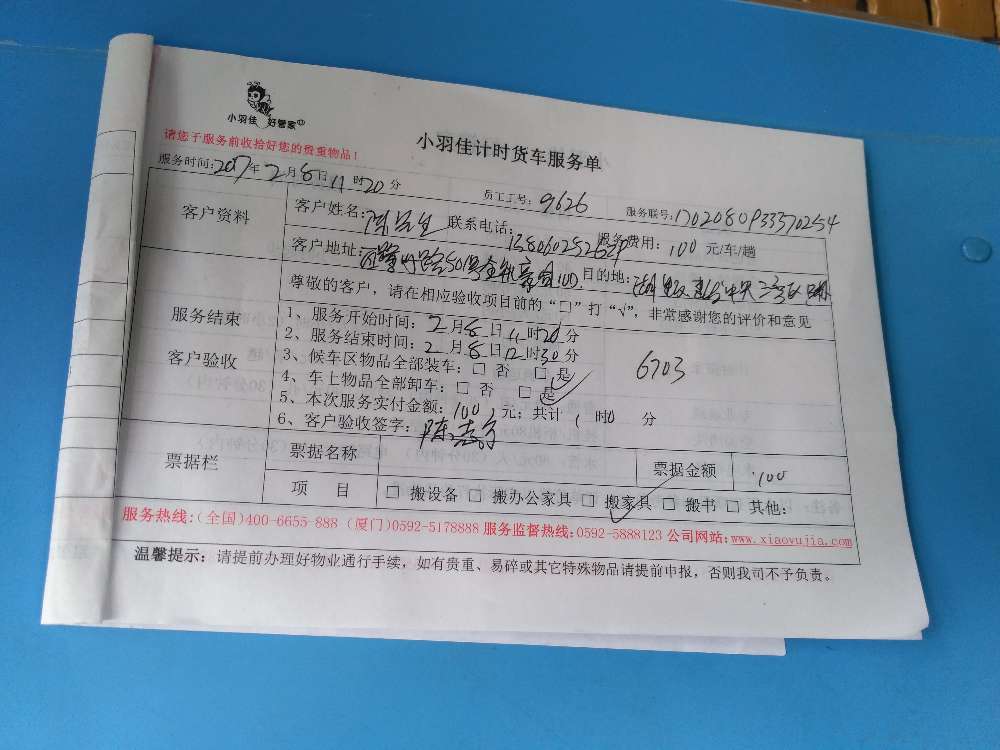 小羽佳 好管家
小羽佳计时货车服务单
请您于服务前收拾好您的贵重物品！
服务时间：2017年2月8日11时20分 员工工号：9626 服务联号：1702080933370254
客户资料 客户姓名：陈先生 联系电话： 服务费用：100元/车/趟
客户地址： 目的地：
尊敬的客户，请在相应验收项目前的“□”打“√”，非常感谢您的评价和意见
服务结束
客户验收
1、服务开始时间：2月8日11时20分
2、服务结束时间：2月8日12时30分
3、候车区物品全部装车：□ 否 □ 是
6703
4、车上物品全部卸车：□ 否 □ 是√
5、本次服务实付金额：100，元；共计 1 时0 分
6、客户验收签字：陈
票据栏 票据名称 票据金额 100
项 目 □ 搬设备 □ 搬办公家具 □ 搬家具√ □ 搬书 □ 其他：
服务热线：(全国)400-6655-888 (厦门)0592-5178888 服务监督热线：0592-5888123 公司网站：www.xiaoyujia.com
温馨提示：请提前办理好物业通行手续，如有贵重、易碎或其它特殊物品请提前申报，否则我司不予负责。